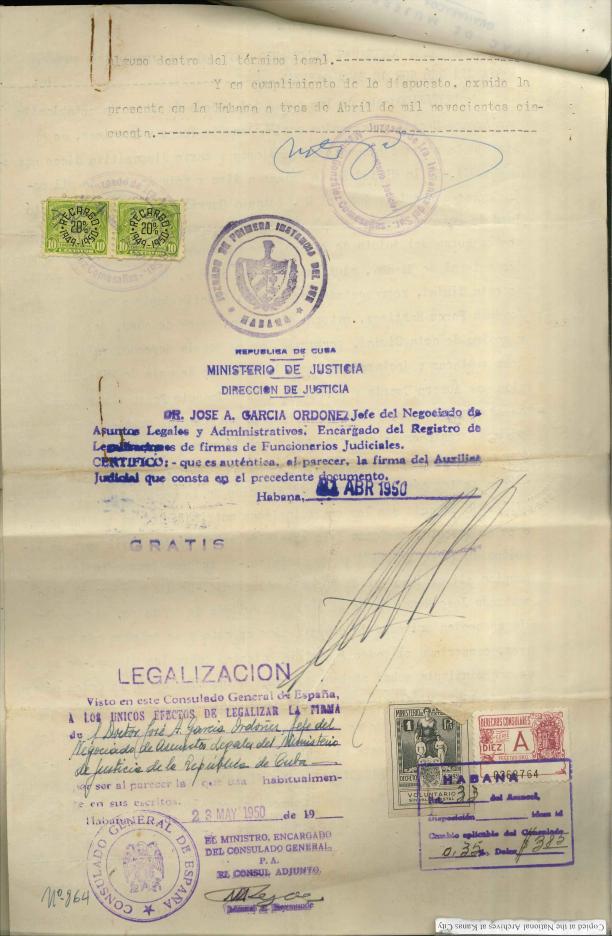 alguno dentro del término legal.
Y en cumplimiento de lo dispuesto, expido la
presente en la Habana a tres de Abril de mil novecientos cin-
cuenta.
RECARGO 20% 1949-1950
RECARGO 20% 1949-1950
10 CENTAVOS 10
10 CENTAVOS 10
JUZGADO DE PRIMERA INSTANCIA DEL SUR
HABANA
REPUBLICA DE CUBA
MINISTERIO DE JUSTICIA
DIRECCION DE JUSTICIA
DR. JOSE A. GARCIA ORDOÑEZ Jefe del Negociado de
Asuntos Legales y Administrativos, Encargado del Registro de
Legalizaciones de firmas de Funcionarios Judiciales.
CERTIFICO:- que es auténtica, al parecer, la firma del Auxiliar
Judicial que consta en el precedente documento.
Habana, ABR 1950
GRATIS
LEGALIZACION
Visto en este Consulado General de España,
A LOS UNICOS EFECTOS DE LEGALIZAR LA FIRMA
Doctor José A. García Ordoñez, Jefe del
Negociado de Asuntos Legales del Ministerio
de Justicia de la República de Cuba
por ser al parecer la que usa habitualmen-
te en sus escritos.
Habana 23 MAY 1950 de 19
EL MINISTRO, ENCARGADO
DEL CONSULADO GENERAL,
P. A.
EL CONSUL ADJUNTO,
CONSULADO GENERAL DE ESPAÑA
Nº 964
1
VOLUNTARIO
DERECHOS CONSULARES
DIEZ
A
0368764
HABANA
33 del Arancel,
Disposición idem id
Cambio aplicable del Consulado
0,35
Copied at the National Archives at Kansas City